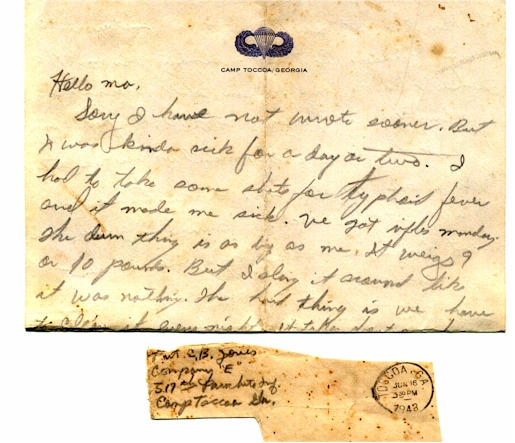 CAMP TOCCOA, GEORGIA
Hello ma.
Sorry I have not wrote sooner. But
I was kinda sick for a day or two. I
had to take some shots for typhoid fever
and it made me sick. We got rifles monday.
The dum thing is as big as me. It weigs 9
or 10 pounds. But I sling it around like
it was nothing. The hard thing is we have
to clean it every night. It takes about
Pvt. C.B. Jones
Company "E"
517th Parachute Inf.
Camp Toccoa Ga.
TOCCOA, GA.
JUN 16
1943